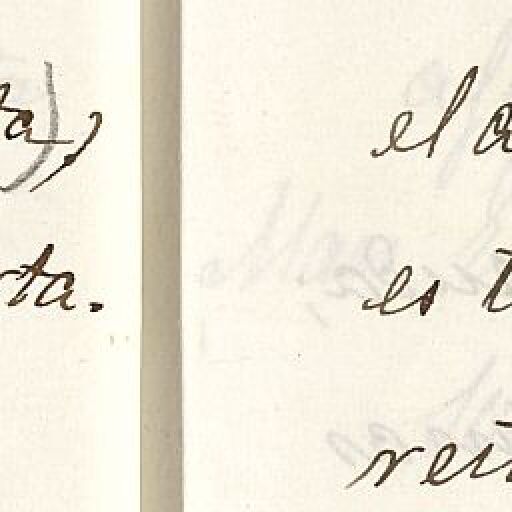 ta);
rta.
el a
es t
rei